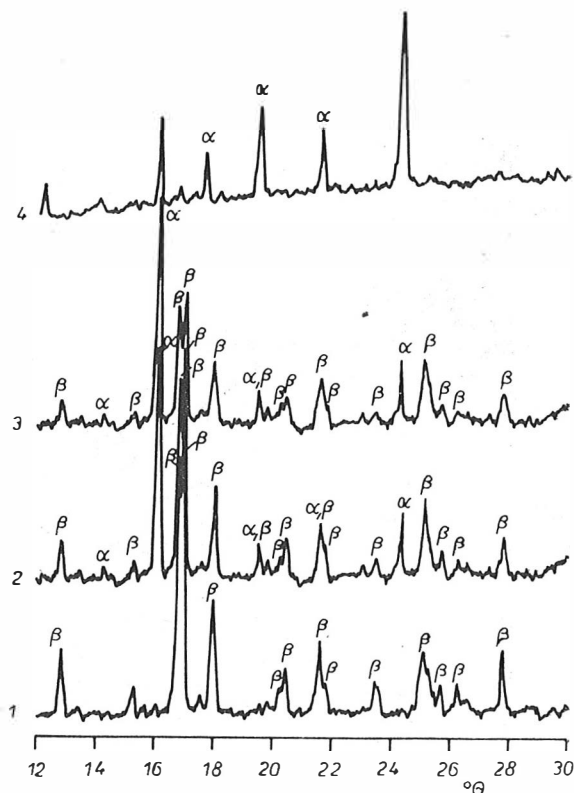 α
α
α
4
α
β
β
α
β
β
β
α
β
α,β
β
β
β
β
β
α
β
β
β
β
3
β
β
β
α
β
α,β
β
β
α,β
β
β
α
β
β
β
β
2
β
β
β
β
β
β
β
β
β
β
β
1
12 14 16 18 20 22 24 26 28 30
°Θ